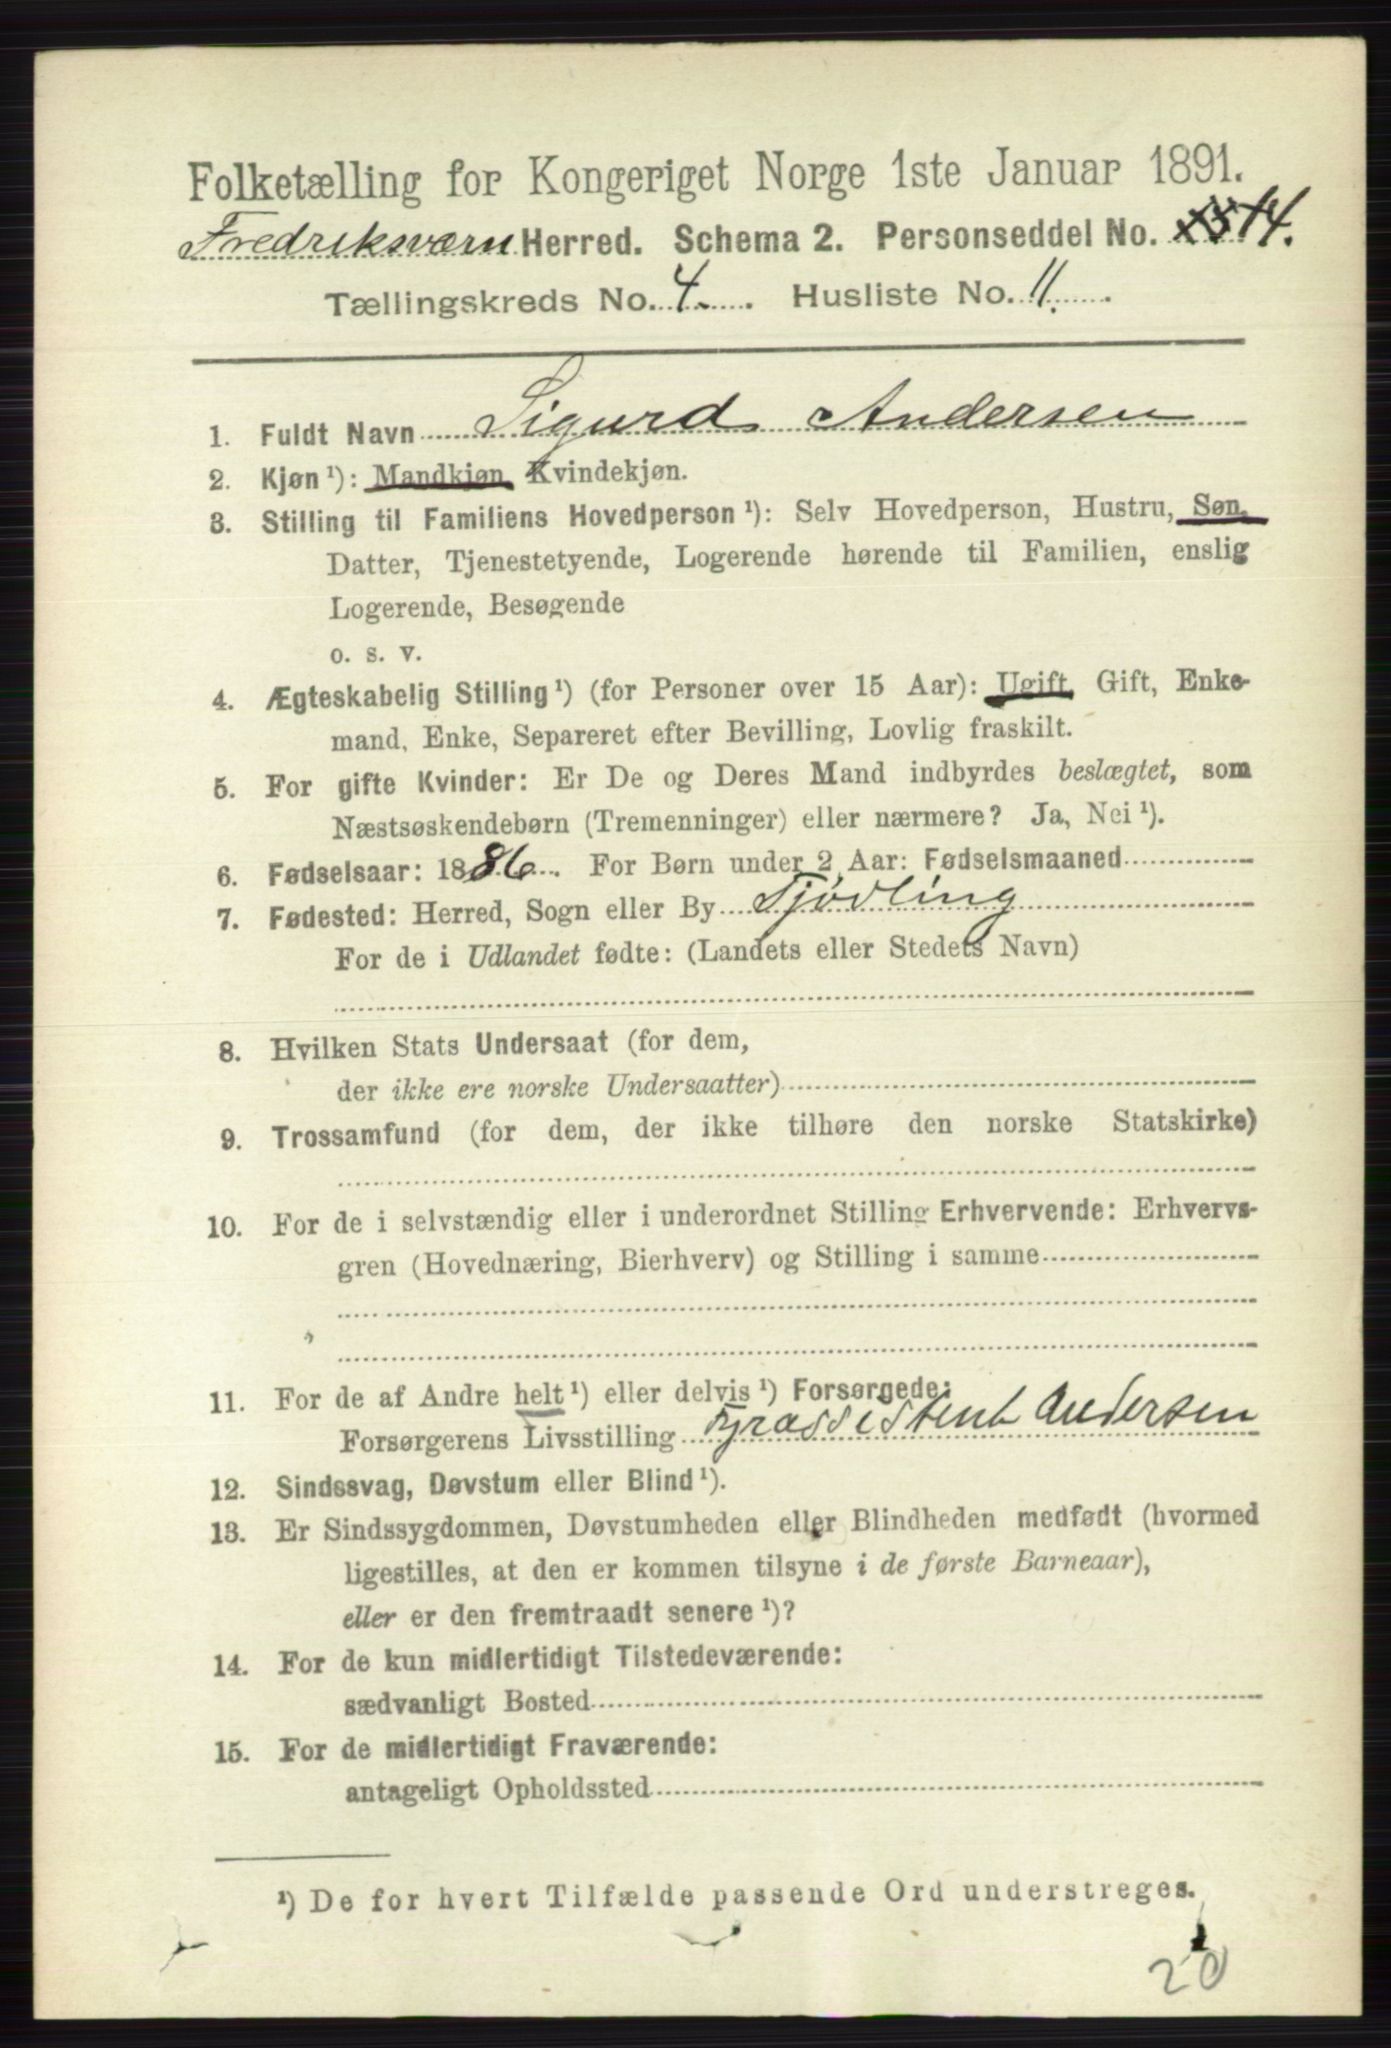 Folketælling for Kongeriget Norge 1ste Januar 1891.
Fredriksværn Herred. Schema 2. Personseddel No. 14.
Tællingskreds No. 4. Husliste No. 11.
1. Fuldt Navn Sigurd Andersen
2. Kjøn ¹): Mandkjøn Kvindekjøn.
3. Stilling til Familiens Hovedperson ¹): Selv Hovedperson, Hustru, Søn,
Datter, Tjenestetyende, Logerende hørende til Familien, enslig
Logerende, Besøgende
o. s. v.
4. Ægteskabelig Stilling ¹) (for Personer over 15 Aar): Ugift, Gift, Enke-
mand, Enke, Separeret efter Bevilling, Lovlig fraskilt.
5. For gifte Kvinder: Er De og Deres Mand indbyrdes beslægtet, som
Næstsøskendebørn (Tremenninger) eller nærmere? Ja, Nei ¹).
6. Fødselsaar: 1886. For Børn under 2 Aar: Fødselsmaaned
7. Fødested: Herred, Sogn eller By Tjødling
For de i Udlandet fødte: (Landets eller Stedets Navn)
8. Hvilken Stats Undersaat (for dem,
der ikke ere norske Undersaatter)
9. Trossamfund (for dem, der ikke tilhøre den norske Statskirke)
10. For de i selvstændig eller i underordnet Stilling Erhvervende: Erhvervs-
gren (Hovednæring, Bierhverv) og Stilling i samme
11. For de af Andre helt ¹) eller delvis ¹) Forsørgede:
Forsørgerens Livsstilling Fyrassistent Andersen
12. Sindssvag, Døvstum eller Blind ¹).
13. Er Sindssygdommen, Døvstumheden eller Blindheden medfødt (hvormed
ligestilles, at den er kommen tilsyne i de første Barneaar),
eller er den fremtraadt senere ¹)?
14. For de kun midlertidigt Tilstedeværende:
sædvanligt Bosted
15. For de midlertidigt Fraværende:
antageligt Opholdssted
¹) De for hvert Tilfælde passende Ord understreges.
20